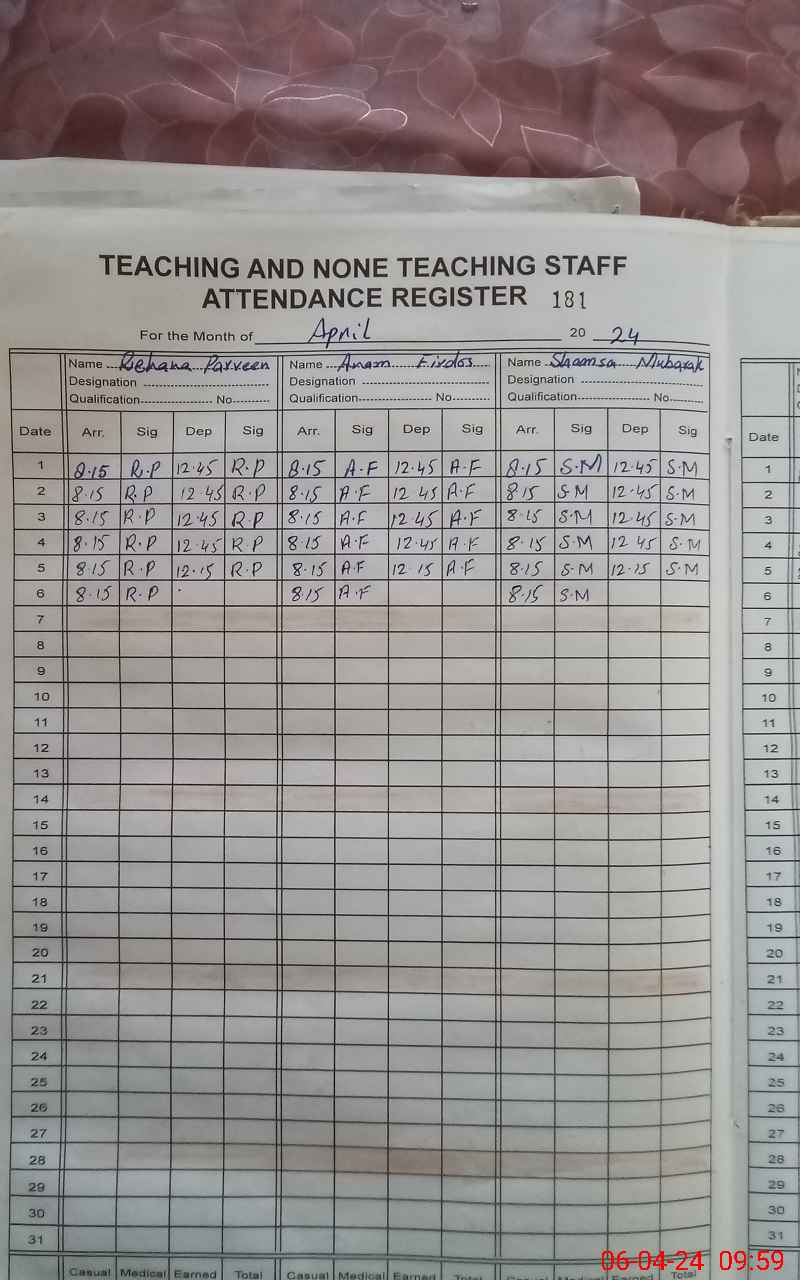 TEACHING AND NONE TEACHING STAFF
ATTENDANCE REGISTER 181
For the Month of April 20 24
Name Rehana Parveen Name Anam Firdos Name Shamsa Mubarak
Designation Designation Designation
Qualification No Qualification No Qualification No
Date Arr. Sig Dep Sig Arr. Sig Dep Sig Arr. Sig Dep Sig Date
1 8.15 R.P 12.45 R.P 8.15 A.F 12.45 A.F 8.15 S.M 12.45 S.M 1
2 8.15 R.P 12 45 R.P 8.15 A.F 12 45 A.F 8 15 S.M 12.45 S.M 2
3 8.15 R.P 12.45 R.P 8.15 A.F 12 45 A.F 8.15 S.M 12.45 S.M 3
4 8.15 R.P 12.45 R.P 8.15 A.F 12.45 A.F 8.15 S.M 12 45 S.M 4
5 8.15 R.P 12.15 R.P 8.15 A.F 12 15 A.F 8.15 S.M 12.15 S.M 5
6 8.15 R.P 8.15 A.F 8.15 S.M 6
7 7
8 8
9 9
10 10
11 11
12 12
13 13
14 14
15 15
16 16
17 17
18 18
19 19
20 20
21 21
22 22
23 23
24 24
25 25
26 26
27 27
28 28
29 29
30 30
31 31
Casual Medical Earned Total Casual Medical Earned Total Casual Medical Earned Total
06-04-24 09:59